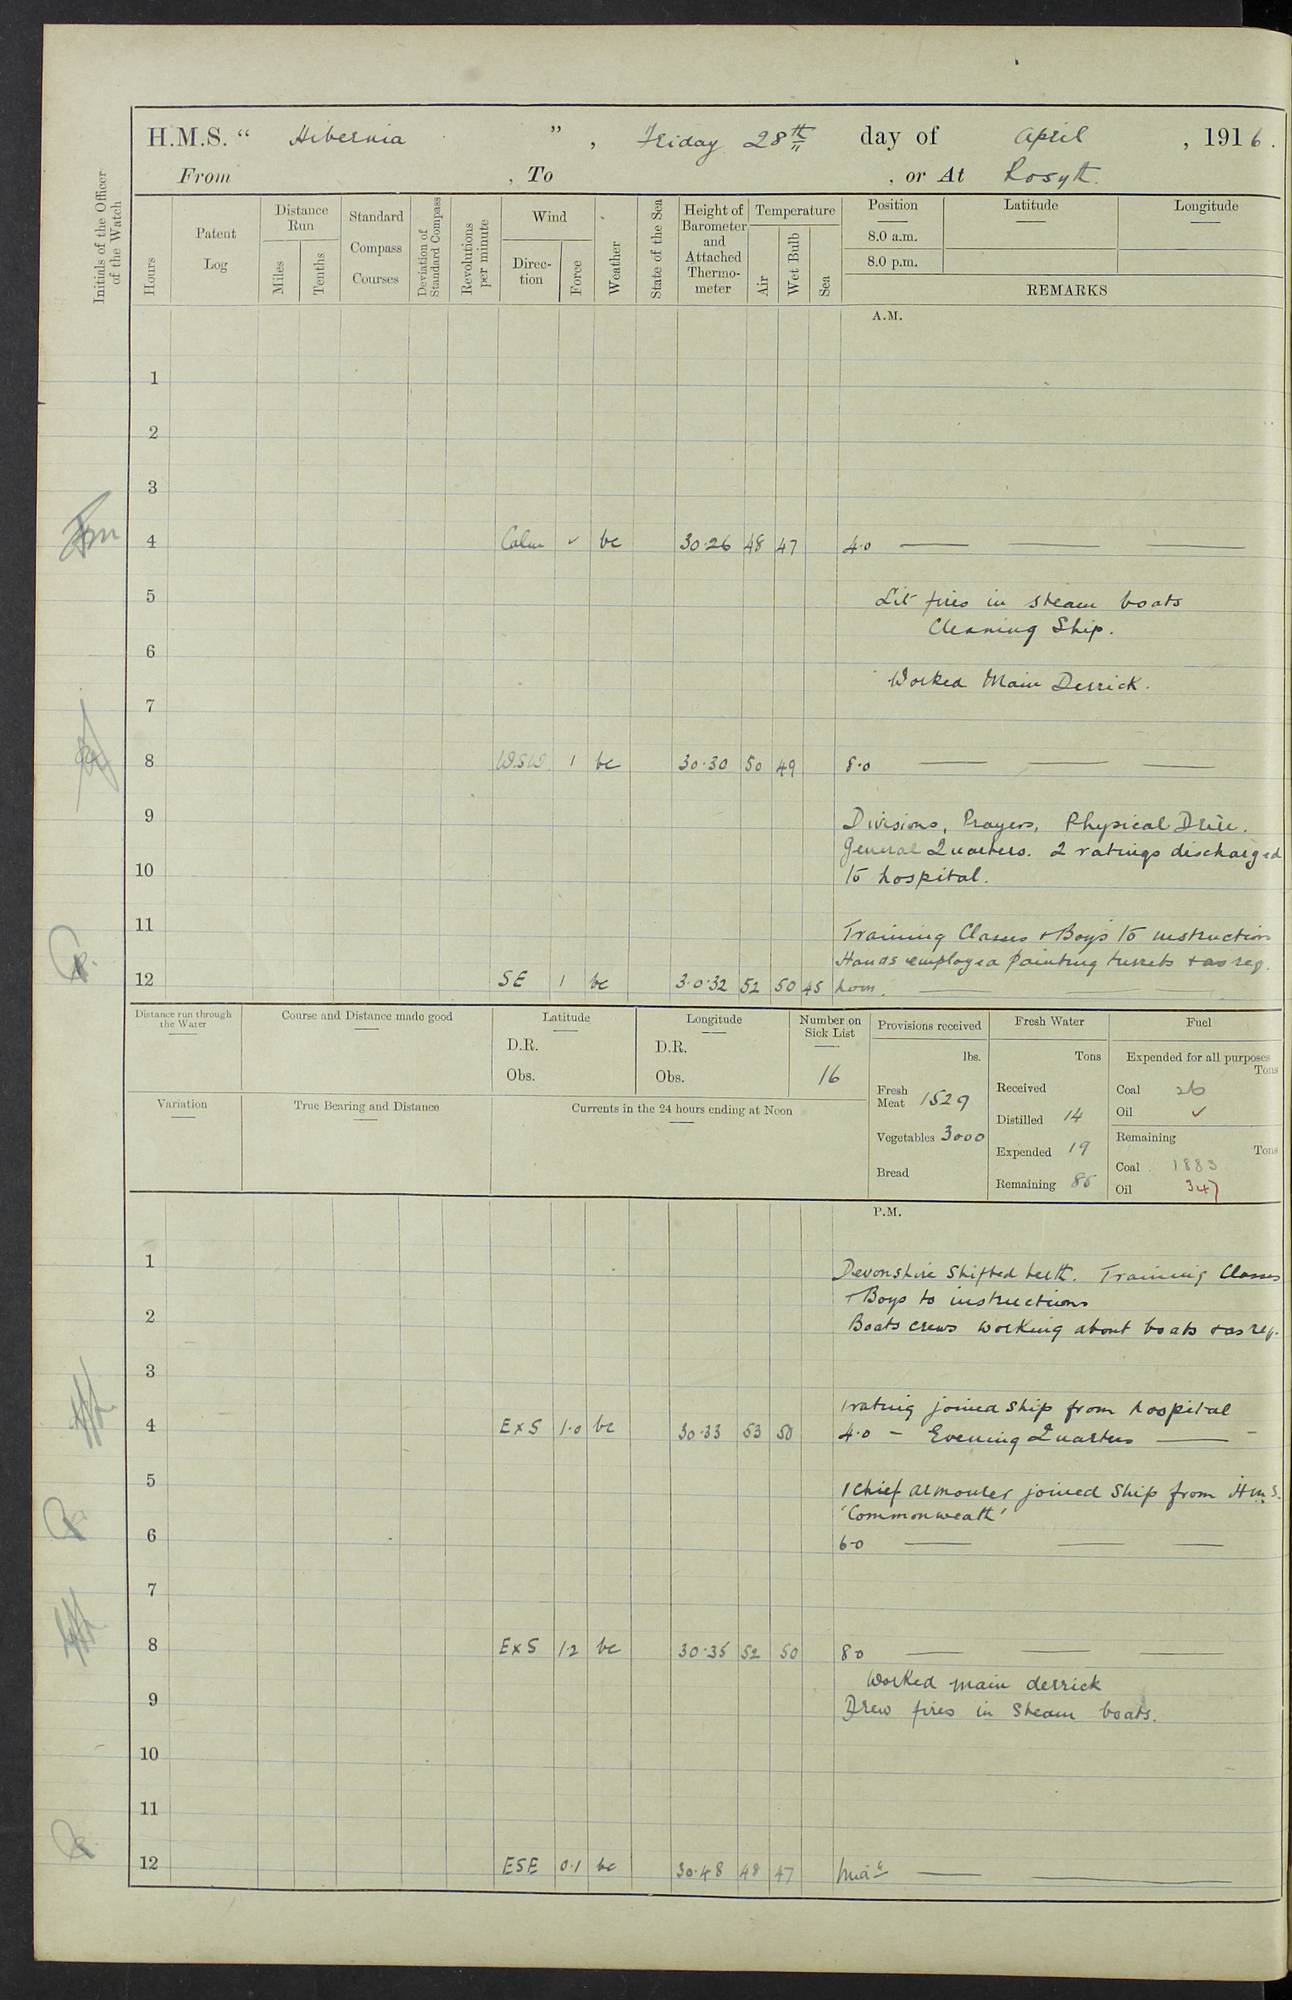 H.M.S. “ Hibernia ” , Friday 28th day of April , 1916 .
From , To , or At Rosyth.
Initials of the Officer of the Watch
Hours
Patent Log
Distance Run
Miles
Tenths
Standard Compass Courses
Deviation of Standard Compass
Revolutions per minute
Wind
Direc- tion
Force
Weather
State of the Sea
Height of Barometer and Attached Thermo- meter
Temperature
Air
Wet Bulb
Sea
Position
8.0 a.m.
8.0 p.m.
Latitude
Longitude
REMARKS
A.M.
1
2
3
4 Calm ✓ bc 30.26 48 47 4.0
5 Lit fires in steam boats
Cleaning Ship.
6
Worked Main Derrick.
7
8 W.S.W. 1 bc 30.30 50 49 8.0
9 Divisions, Prayers, Physical Drill.
General Quarters. 2 ratings discharged
10 to hospital.
11 Training Classes + Boys to instruction
Hands employed painting turrets + as req.
12 SE 1 bc 30.32 52 50 45 noon.
Distance run through the Water
Course and Distance made good
Latitude
D.R.
Obs.
Longitude
D.R.
Obs.
Number on Sick List
16
Provisions received
lbs.
Fresh Meat 1529
Vegetables 3000
Bread
Fresh Water
Tons
Received
Distilled 14
Expended 19
Remaining 85
Fuel
Expended for all purposes
Tons
Coal 26
Oil ✓
Remaining
Tons
Coal 1883
Oil 347
Variation
True Bearing and Distance
Currents in the 24 hours ending at Noon
P.M.
1 Devonshire shifted berth. Training Classes
+ Boys to instructions
2 Boats crews working about boats + as req.
3
1 rating joined ship from hospital
4 ExS 1.0 bc 30.33 53 50 4.0 - Evening Quarters
5 1 Chief armourer joined Ship from H.M.S.
'Commonweath'
6 6.0
7
8 ExS 1.2 bc 30.35 52 50 8.0
Worked main derrick
9 Drew fires in Steam boats.
10
11
12 ESE 0.1 bc 30.48 48 47 Midt